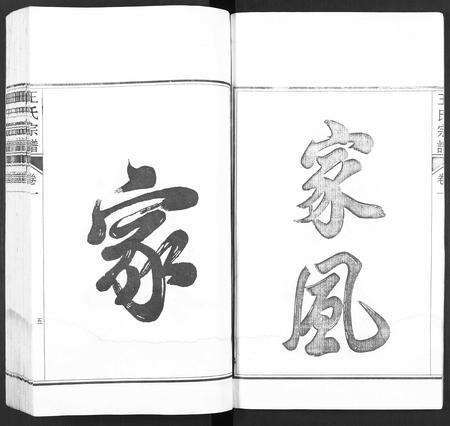 家風
王氏宗譜
卷
家
王氏宗譜
卷
五